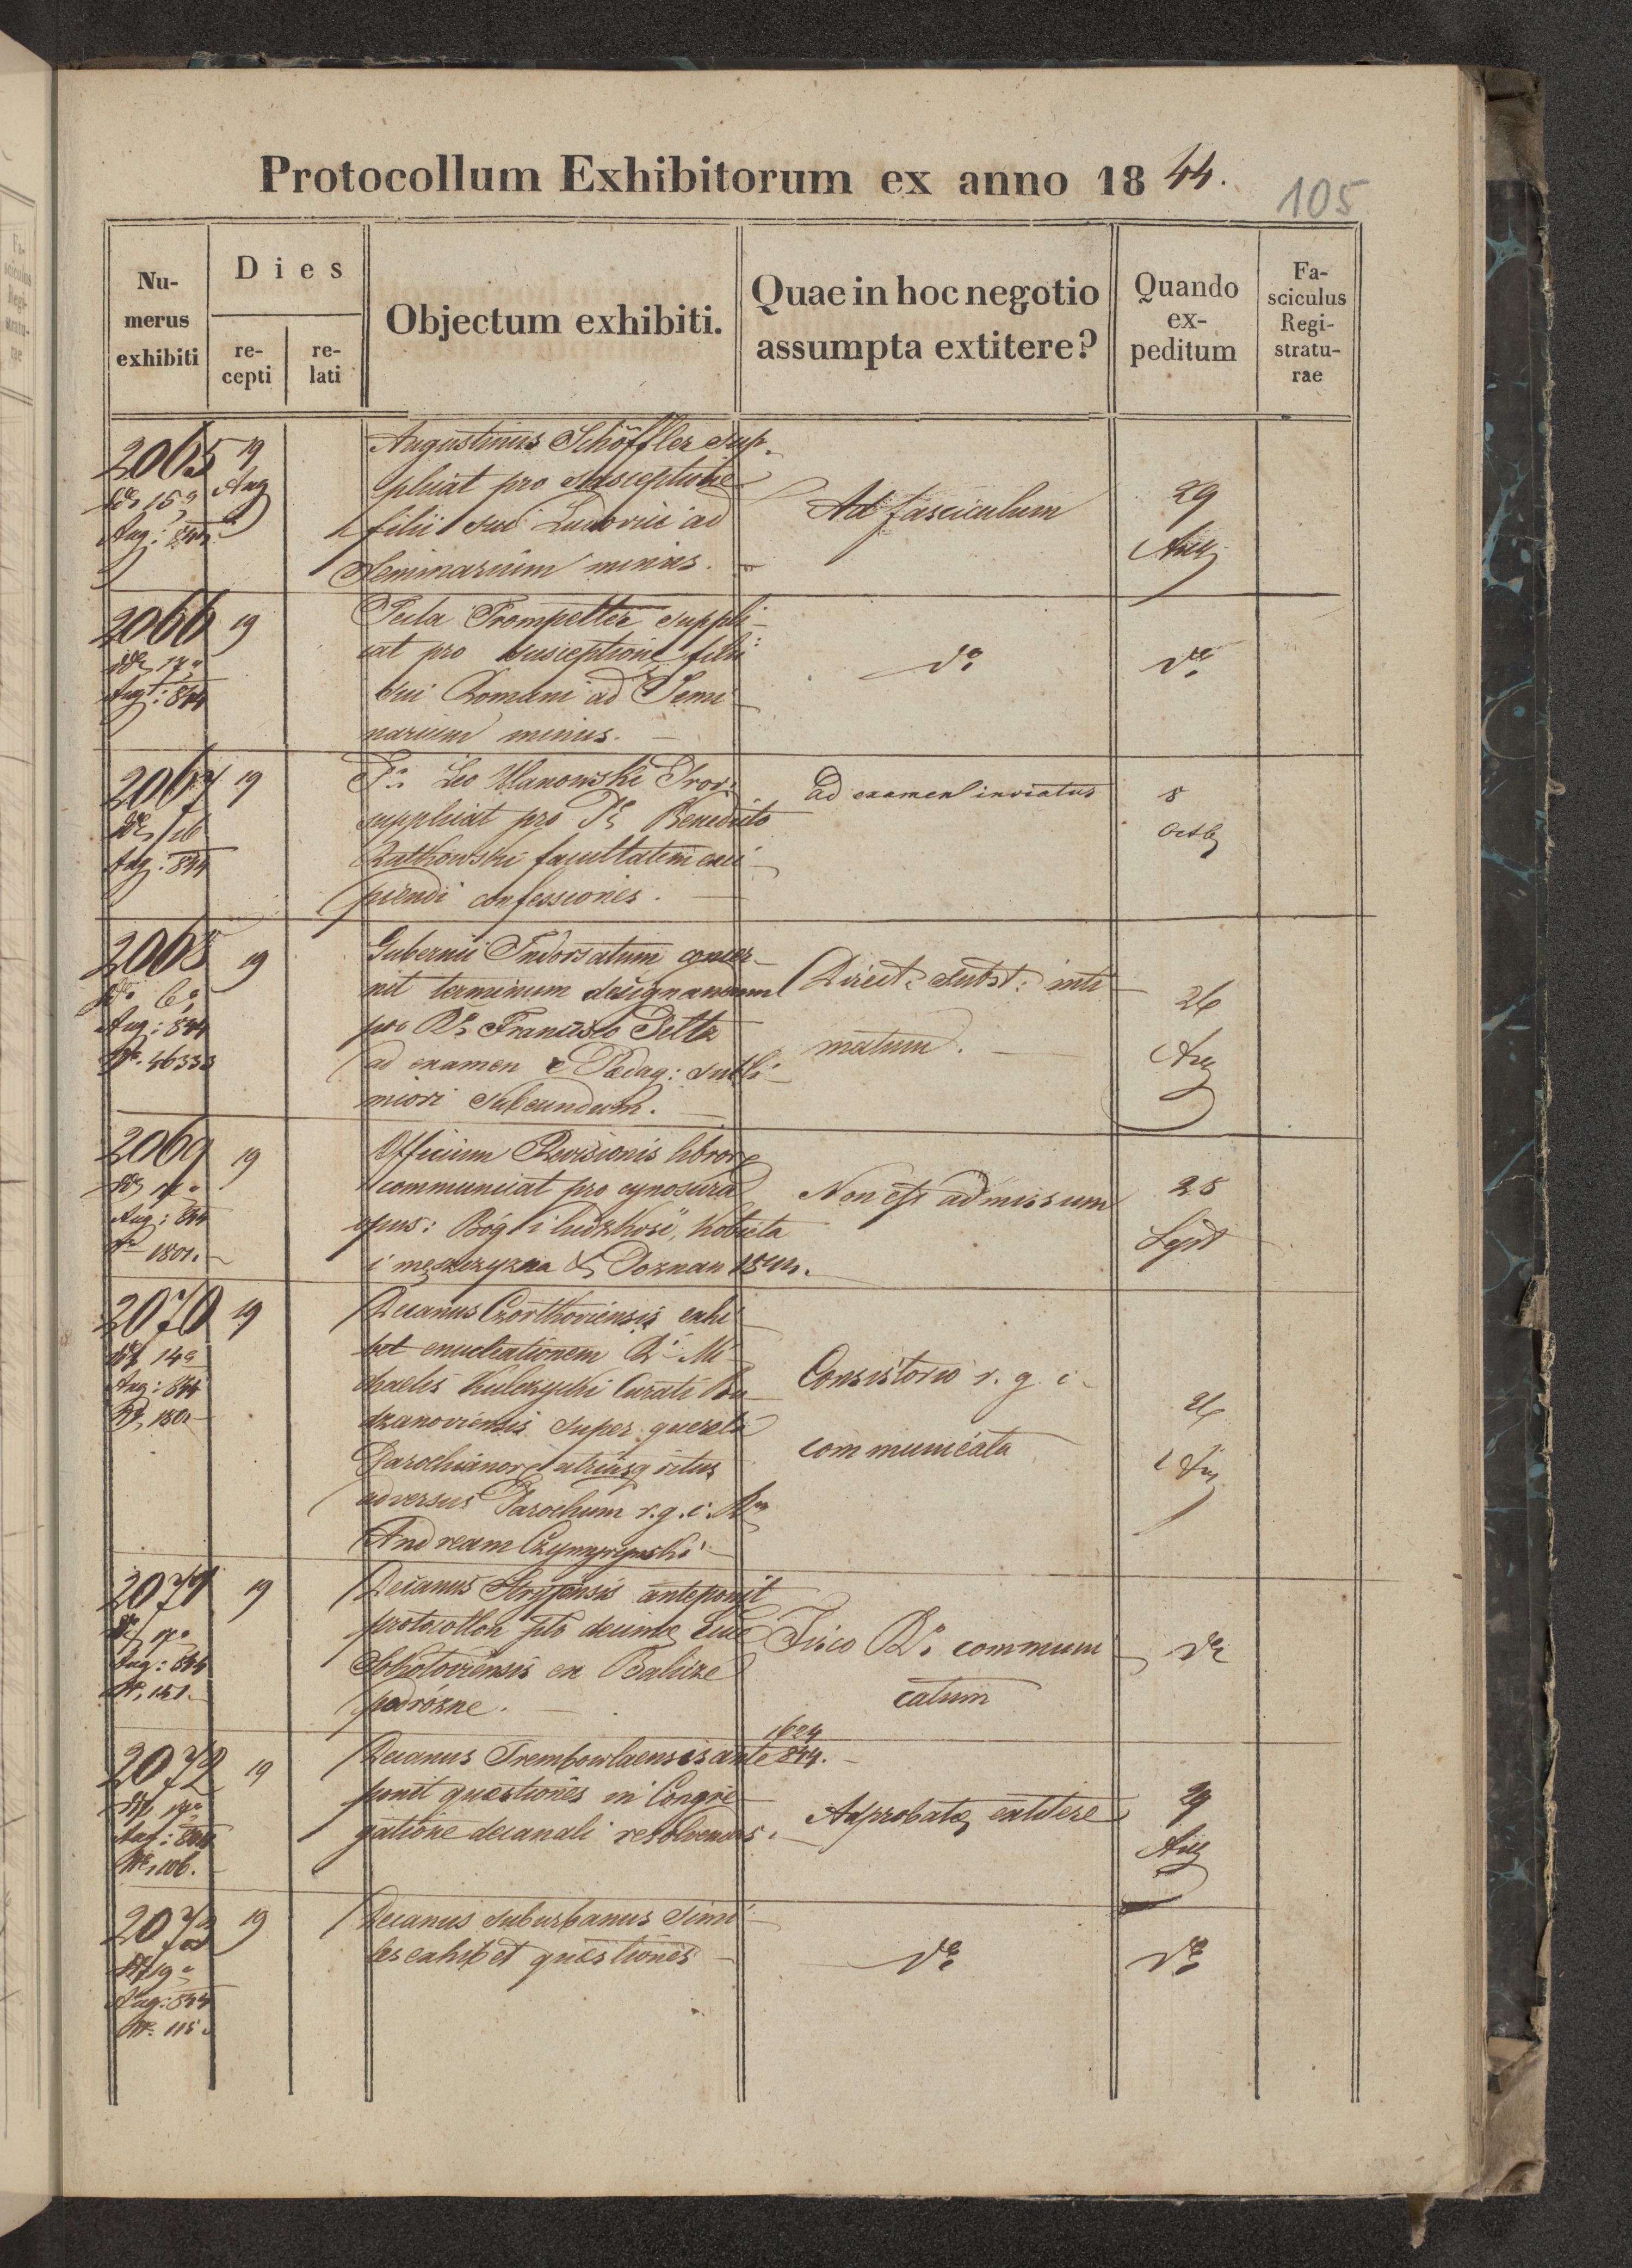 Protocollum Exhibitorum ex anno 1844.
105
Numerus exhibiti
Dies
recepti
relati
Objectum exhibiti.
Quae in hoc negotio assumpta extitere?
Quando expeditum
Fasciculus Registraturae
2065
19
Aug
15a
Aug: 844
Augustinus Schöffler sup-
plicat pro susceptione
filii sui Ludovici ad
Seminarium minus.
Ad fasciculum
29
Aug
2066
19
17a
Augt: 844
Tecla Trompetter suppli-
cat pro susceptione filii
sui Romani ad Semi-
narium minus.
do
do
2067
19
Aug: 844
Leo Ulanowski Prov:
supplicat pro Benedicto
Rutkowski facultatem exci-
piendi confessiones.
Ad examen inviatus
8
Octb
2068
19
6a
Aug: 844
No. 46333
Gubernii Indorsatum concer-
nit terminum designandum
pro Francisco
ad examen e Paedag: subli-
miori subeundum.
Direct: subst: inti-
matum.
26
Aug
2069
19
Aug: 844
1801.
Officium Revisionis libror
communicat pro cynosura
opus: Bóg i ludzkość, kobieta
i mężczyzna Poznan 1844.
Non est admissum
25
Sept
2070
19
14a
Aug: 844
180
Decanus Czortkoviensis exhi-
bet enucleationem Mi-
chaelis Kulczycki Curati Bu-
dzanoviensis super querela
Parochianor utriusq ritus
adversus Parochum r. g. c.
Andream
Consistorio r. g. c.
communicata
26
Aug
2071
19
Aug: 844
151.
Decanus Stryjensis anteponit
protocollon pto decimae
ex Balicze
podrózne.
Fisco communi
catum
do
2072
19
Aug: 844
106.
Decanus Trembowlaensis ante
ponit quaestiones in Congre-
gatione decanali resolvendas.
1624
844.
Adprobatae extitere
29
Aug
2073
19
19a
Aug: 844
No. 115
Decanus suburbanus simi-
les exhibet quaestiones
do
do